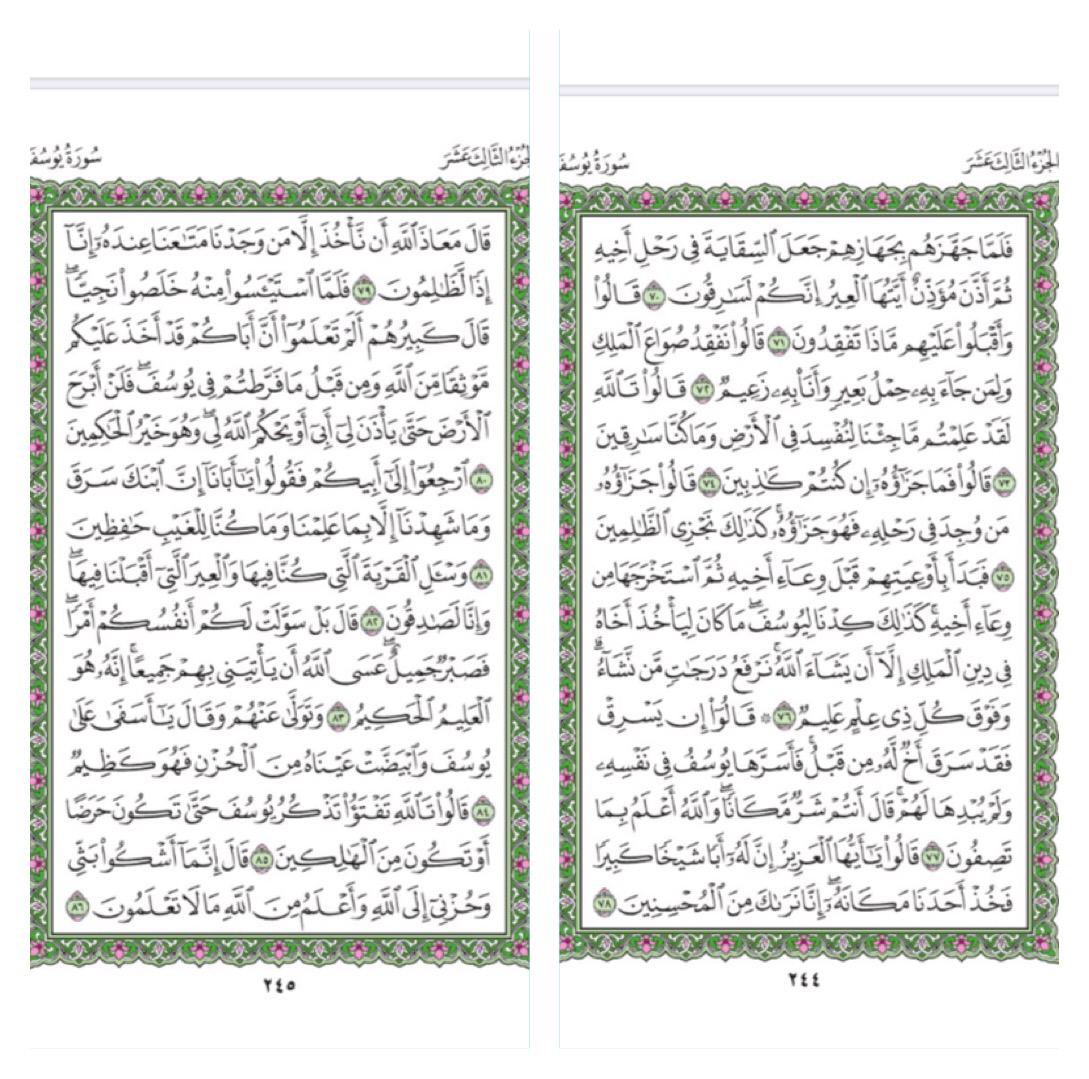 الجزء الثالث عشر
سورة يوسف
فَلَمَّا جَهَّزَهُم بِجَهَازِهِمْ جَعَلَ ٱلسِّقَايَةَ فِى رَحْلِ أَخِيهِ
ثُمَّ أَذَّنَ مُؤَذِّنٌ أَيَّتُهَا ٱلْعِيرُ إِنَّكُمْ لَسَٰرِقُونَ ٧٠ قَالُوا۟
وَأَقْبَلُوا۟ عَلَيْهِم مَّاذَا تَفْقِدُونَ ٧١ قَالُوا۟ نَفْقِدُ صُوَاعَ ٱلْمَلِكِ
وَلِمَن جَآءَ بِهِۦ حِمْلُ بَعِيرٍ وَأَنَا۠ بِهِۦ زَعِيمٌ ٧٢ قَالُوا۟ تَٱللَّهِ
لَقَدْ عَلِمْتُم مَّا جِئْنَا لِنُفْسِدَ فِى ٱلْأَرْضِ وَمَا كُنَّا سَٰرِقِينَ
٧٣ قَالُوا۟ فَمَا جَزَٰٓؤُهُۥٓ إِن كُنتُمْ كَٰذِبِينَ ٧٤ قَالُوا۟ جَزَٰٓؤُهُۥ
مَن وُجِدَ فِى رَحْلِهِۦ فَهُوَ جَزَٰٓؤُهُۥ ۚ كَذَٰلِكَ نَجْزِى ٱلظَّٰلِمِينَ
٧٥ فَبَدَأَ بِأَوْعِيَتِهِمْ قَبْلَ وِعَآءِ أَخِيهِ ثُمَّ ٱسْتَخْرَجَهَا مِن
وِعَآءِ أَخِيهِ ۚ كَذَٰلِكَ كِدْنَا لِيُوسُفَ ۖ مَا كَانَ لِيَأْخُذَ أَخَاهُ
فِى دِينِ ٱلْمَلِكِ إِلَّآ أَن يَشَآءَ ٱللَّهُ ۚ نَرْفَعُ دَرَجَٰتٍ مَّن نَّشَآءُ ۗ
وَفَوْقَ كُلِّ ذِى عِلْمٍ عَلِيمٌ ٧٦ ۞ قَالُوٓا۟ إِن يَسْرِقْ
فَقَدْ سَرَقَ أَخٌ لَّهُۥ مِن قَبْلُ ۚ فَأَسَرَّهَا يُوسُفُ فِى نَفْسِهِۦ
وَلَمْ يُبْدِهَا لَهُمْ ۚ قَالَ أَنتُمْ شَرٌّ مَّكَانًا ۖ وَٱللَّهُ أَعْلَمُ بِمَا
تَصِفُونَ ٧٧ قَالُوا۟ يَٰٓأَيُّهَا ٱلْعَزِيزُ إِنَّ لَهُۥٓ أَبًا شَيْخًا كَبِيرًا
فَخُذْ أَحَدَنَا مَكَانَهُۥٓ ۖ إِنَّا نَرَىٰكَ مِنَ ٱلْمُحْسِنِينَ ٧٨
٢٤٤
الجزء الثالث عشر
سورة يوسف
قَالَ مَعَاذَ ٱللَّهِ أَن نَّأْخُذَ إِلَّا مَن وَجَدْنَا مَتَٰعَنَا عِندَهُۥٓ إِنَّآ
إِذًا لَّظَٰلِمُونَ ٧٩ فَلَمَّا ٱسْتَيْـَٔسُوا۟ مِنْهُ خَلَصُوا۟ نَجِيًّا ۖ
قَالَ كَبِيرُهُمْ أَلَمْ تَعْلَمُوٓا۟ أَنَّ أَبَاكُمْ قَدْ أَخَذَ عَلَيْكُم
مَّوْثِقًا مِّنَ ٱللَّهِ وَمِن قَبْلُ مَا فَرَّطتُمْ فِى يُوسُفَ ۖ فَلَنْ أَبْرَحَ
ٱلْأَرْضَ حَتَّىٰ يَأْذَنَ لِىٓ أَبِىٓ أَوْ يَحْكُمَ ٱللَّهُ لِى ۖ وَهُوَ خَيْرُ ٱلْحَٰكِمِينَ
٨٠ ٱرْجِعُوٓا۟ إِلَىٰٓ أَبِيكُمْ فَقُولُوا۟ يَٰٓأَبَانَآ إِنَّ ٱبْنَكَ سَرَقَ
وَمَا شَهِدْنَآ إِلَّا بِمَا عَلِمْنَا وَمَا كُنَّا لِلْغَيْبِ حَٰفِظِينَ
٨١ وَسْـَٔلِ ٱلْقَرْيَةَ ٱلَّتِى كُنَّا فِيهَا وَٱلْعِيرَ ٱلَّتِىٓ أَقْبَلْنَا فِيهَا ۖ
وَإِنَّا لَصَٰدِقُونَ ٨٢ قَالَ بَلْ سَوَّلَتْ لَكُمْ أَنفُسُكُمْ أَمْرًا ۖ
فَصَبْرٌ جَمِيلٌ ۖ عَسَى ٱللَّهُ أَن يَأْتِيَنِى بِهِمْ جَمِيعًا ۚ إِنَّهُۥ هُوَ
ٱلْعَلِيمُ ٱلْحَكِيمُ ٨٣ وَتَوَلَّىٰ عَنْهُمْ وَقَالَ يَٰٓأَسَفَىٰ عَلَىٰ
يُوسُفَ وَٱبْيَضَّتْ عَيْنَاهُ مِنَ ٱلْحُزْنِ فَهُوَ كَظِيمٌ
٨٤ قَالُوا۟ تَٱللَّهِ تَفْتَؤُا۟ تَذْكُرُ يُوسُفَ حَتَّىٰ تَكُونَ حَرَضًا
أَوْ تَكُونَ مِنَ ٱلْهَٰلِكِينَ ٨٥ قَالَ إِنَّمَآ أَشْكُوا۟ بَثِّى
وَحُزْنِىٓ إِلَى ٱللَّهِ وَأَعْلَمُ مِنَ ٱللَّهِ مَا لَا تَعْلَمُونَ ٨٦
٢٤٥